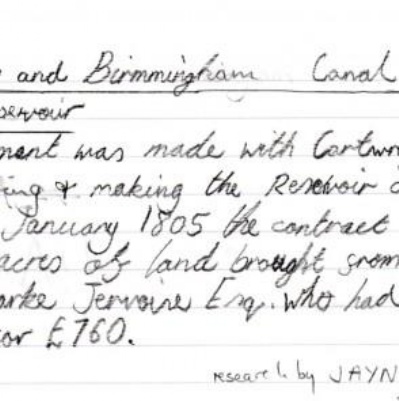 and Birmmingham Canal
servoir
ment was made with Cartwr
ing & making the Resevoir
January 1805 the contract
acres of land brought from
arke Jervoire Esq. Who had
for £760.
research by JAYN